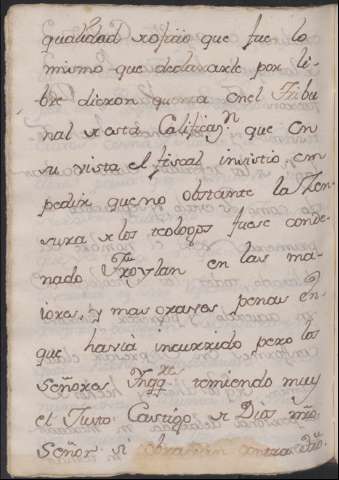 qualidad xofizio que fue lo
mismo que declararle por li-
bre dieron quenta en el Tribu
nal x esta Calificaz.n que en
su vista el fiscal insistio, em
pedir que no obstante la Zen-
sura x los teologos fuese conde-
nado Froylan en las ma-
iores, y mas graves, penas en
que havia incurrido pero los
Señores Ynqq.res temiendo muy
el Justo Castigo x Dios nro.
Señor si obraban contra dro.